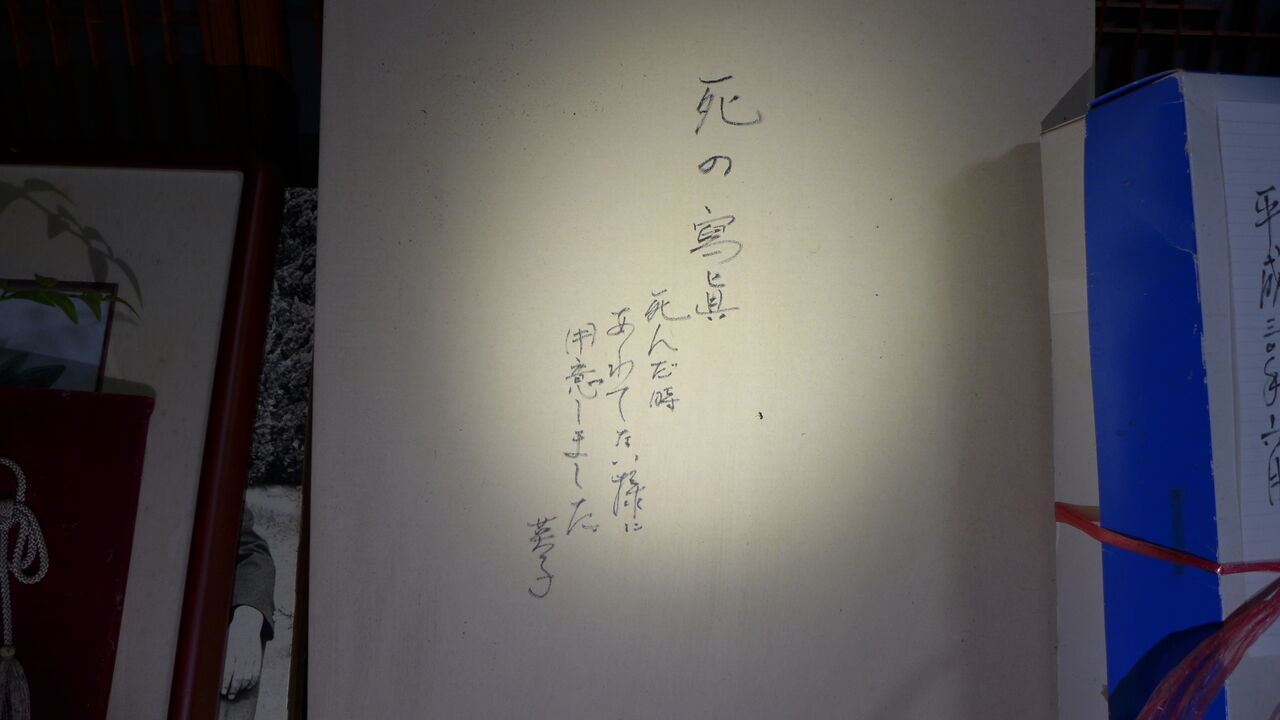 死の寫眞
死んだ時
あわてない様に
用意しました
英子
平成三〇年六月